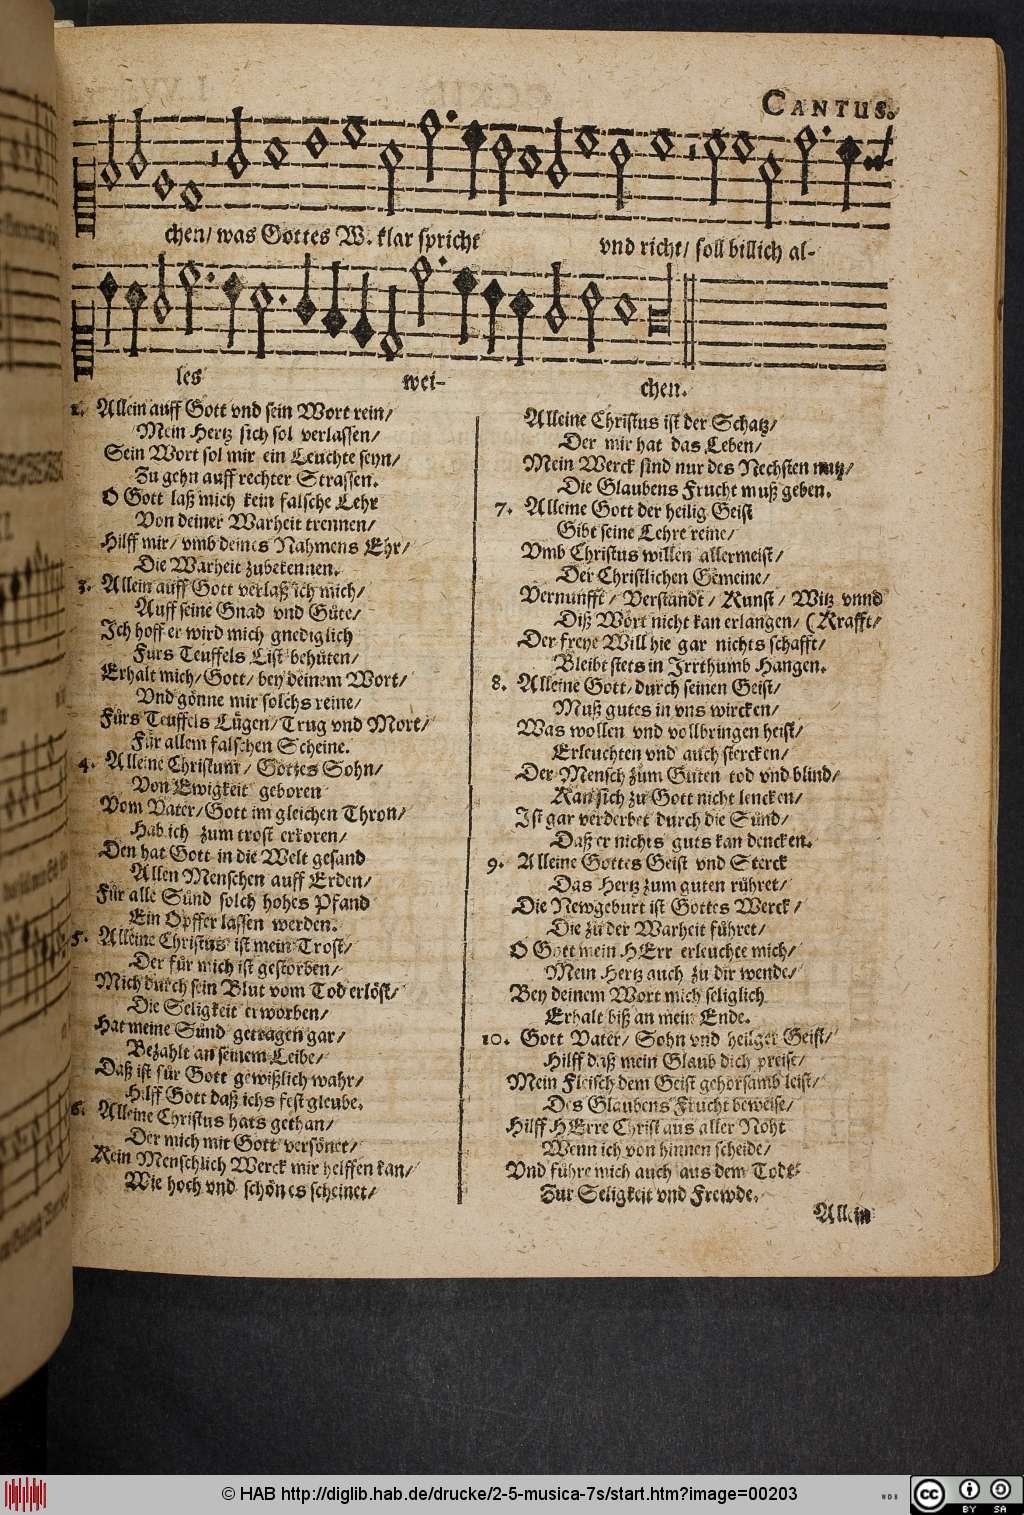 CANTUS.
chen/ was Gottes W. klar spricht vnd richt/ soll billich al-
les wei- chen.
2. Allein auff Gott vnd sein Wort rein/
Mein Hertz sich sol verlassen/
Sein Wort sol mir ein Leuchte seyn/
Zu gehn auff rechter Strassen.
O Gott laß mich kein falsche Lehr
Von deiner Warheit trennen/
Hilff mir/ vmb deines Nahmens Ehr/
Die Warheit zubekennen.
3. Allein auff Gott verlaß ich mich/
Auff seine Gnad vnd Güte/
Ich hoff er wird mich gnediglich
Fürs Teuffels List behüten/
Erhalt mich/ Gott/ bey deinem Wort/
Vnd gönne mir solchs reine/
Fürs Teuffels Lügen/ Trug vnd Mort/
Für allem falschen Scheine.
4. Alleine Christum/ Gottes Sohn/
Von Ewigkeit geboren
Vom Vater/ Gott im gleichen Thron/
Hab ich zum trost erkoren/
Den hat Gott in die Welt gesand
Allen Menschen auff Erden/
Für alle Sünd solch hohes Pfand
Ein Opffer lassen werden.
5. Alleine Christus ist mein Trost/
Der für mich ist gestorben/
Mich durch sein Blut vom Tod erlöst/
Die Seligkeit erworben/
Hat meine Sünd getragen gar/
Bezahlt an seinem Leibe/
Daß ist für Gott gewißlich wahr/
Hilff Gott daß ichs fest gleube.
6. Alleine Christus hats gethan/
Der mich mit Gott versönet/
Kein Menschlich Werck mir helffen kan/
Wie hoch vnd schön es scheinet/
Alleine Christus ist der Schatz/
Der mir hat das Leben/
Mein Werck sind nur des Nechsten nutz/
Die Glaubens Frucht muß geben.
7. Alleine Gott der heilig Geist
Gibt seine Lehre reine/
Vmb Christus willen allermeist/
Der Christlichen Gemeine/
Vernunfft/ Verstandt/ Kunst/ Witz vnnd
Diß Wort nicht kan erlangen/ (Krafft/
Der freye Will hie gar nichts schafft/
Bleibt stets in Irrthumb Hangen.
8. Alleine Gott/ durch seinen Geist/
Muß gutes in vns wircken/
Was wollen vnd vollbringen heist/
Erleuchten vnd auch stercken/
Der Mensch zum Guten tod vnd blind/
Kan sich zu Gott nicht lencken/
Ist gar verderbet durch die Sünd/
Daß er nichts guts kan dencken.
9. Alleine Gottes Geist vnd Sterck
Das Hertz zum guten rühret/
Die Newgeburt ist Gottes Werck/
Die zu der Warheit führet/
O Gott mein HErr erleuchte mich/
Mein Hertz auch zu dir wende/
Bey deinem Wort mich seliglich
Erhalt biß an mein Ende.
10. Gott Vater/ Sohn vnd heilger Geist/
Hilff daß mein Glaub dich preise/
Mein Fleisch dem Geist gehorsamb leist/
Des Glaubens Frucht beweise/
Hilff HErre Christ aus aller Noht
Wenn ich von hinnen scheide/
Vnd führe mich auch aus dem Tode
Zur Seligkeit vnd Frewde.
Allein
© HAB http://diglib.hab.de/drucke/2-5-musica-7s/start.htm?image=00203
WDB
CC BY SA